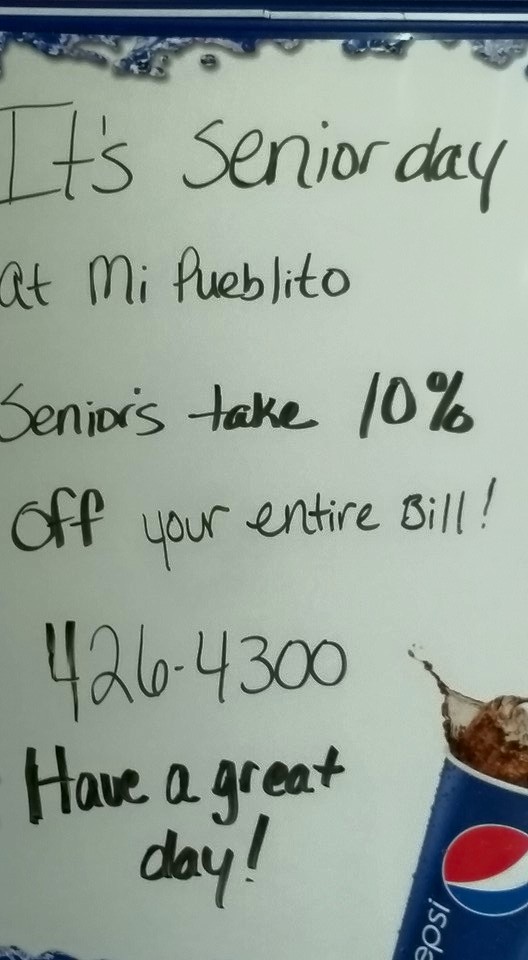 It's Senior day
at Mi Pueblito
Senior's take 10%
Off your entire Bill!
426-4300
Have a great
day!
epsi